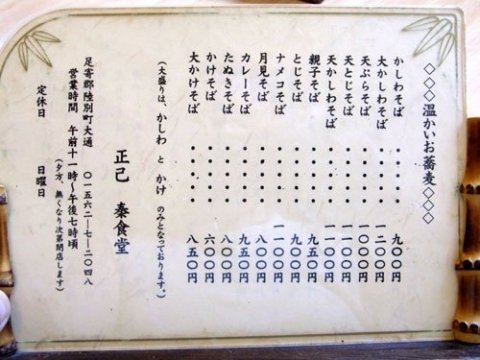 ◇◇◇温かいお蕎麦◇◇◇
かしわそば ・・・・・ 九〇〇円
大かしわそば ・・・・・ 一二〇〇円
天ぷらそば ・・・・・ 一〇〇〇円
天とじそば ・・・・・ 一一〇〇円
天かしわそば ・・・・・ 一一〇〇円
親子そば ・・・・・ 九五〇円
とじそば ・・・・・ 九〇〇円
ナメコそば ・・・・・ 一一〇〇円
月見そば ・・・・・ 八〇〇円
カレーそば ・・・・・ 九五〇円
たぬきそば ・・・・・ 八〇〇円
かけそば ・・・・・ 六〇〇円
大かけそば ・・・・・ 八五〇円
(大盛りは、かしわ と かけ のみとなっております。)
正己 秦食堂
足寄郡陸別町大通 〇一五六二―七―二〇四八
営業時間 午前十一時〜午後七時頃
(夕方、無くなり次第閉店します)
定休日 日曜日